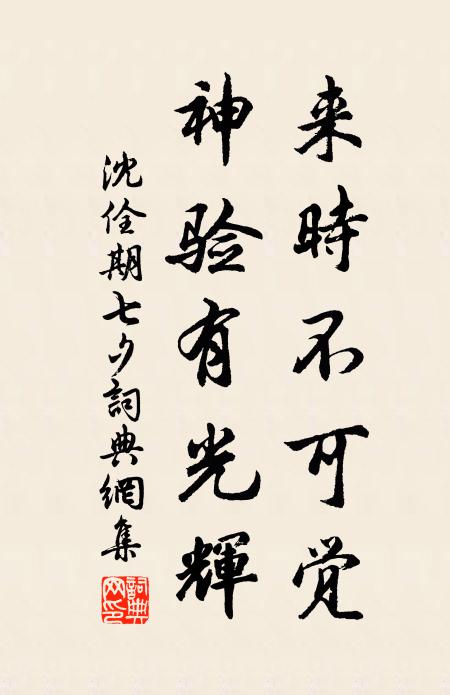 来時不可觉
神验有光輝
沈佺期七夕詞典網集
詞典网印